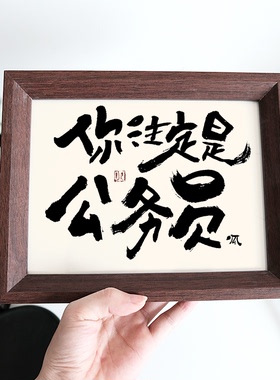 你注定是
公务员